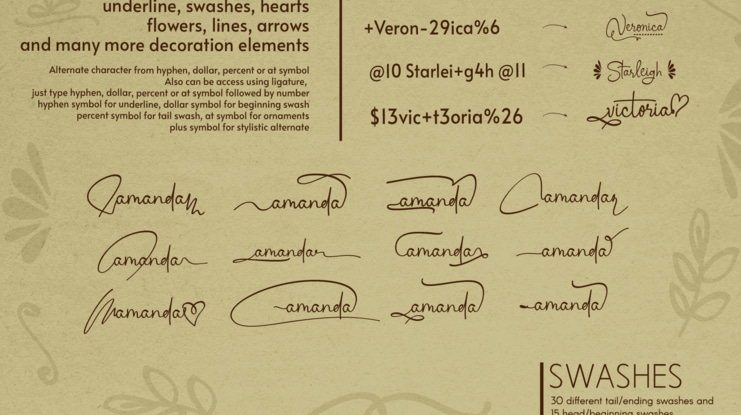 underline, swashes, hearts
flowers, lines, arrows
and many more decoration elements
Alternate character from hyphen, dollar, percent or at symbol
Also can be access using ligature,
just type hyphen, dollar, percent or at symbol followed by number
hyphen symbol for underline, dollar symbol for beginning swash
percent symbol for tail swash, at symbol for ornaments
plus symbol for stylistic alternate
+Veron-29ica%6 Veronica
@10 Starlei+g4h @11 Starleigh
$13vic+t3oria%26 victoria
amanda amanda amanda amanda
amanda amanda amanda amanda
amanda amanda amanda amanda
SWASHES
30 different tail/ending swashes and
15 head/beginning swashes